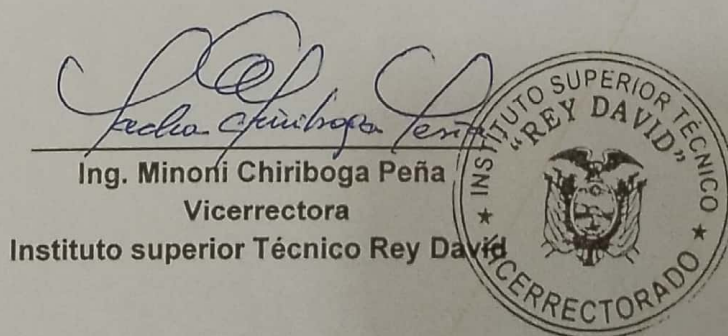 Chiriboga
Ing. Minoni Chiriboga Peña
Vicerrectora
Instituto superior Técnico Rey David
INSTITUTO SUPERIOR TÉCNICO
"REY DAVID"
★ VICERRECTORADO ★